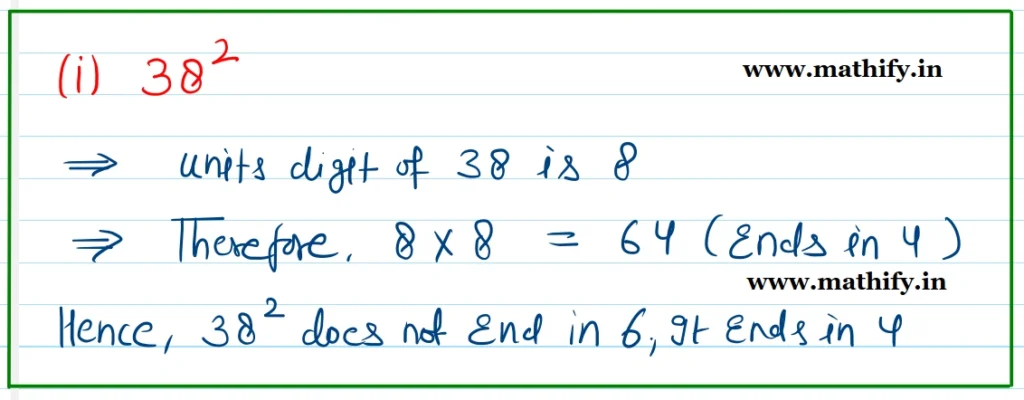 (i) 38²
www.mathify.in
⇒ units digit of 38 is 8
⇒ Therefore, 8 × 8 = 64 (Ends in 4)
www.mathify.in
Hence, 38² does not End in 6, It Ends in 4